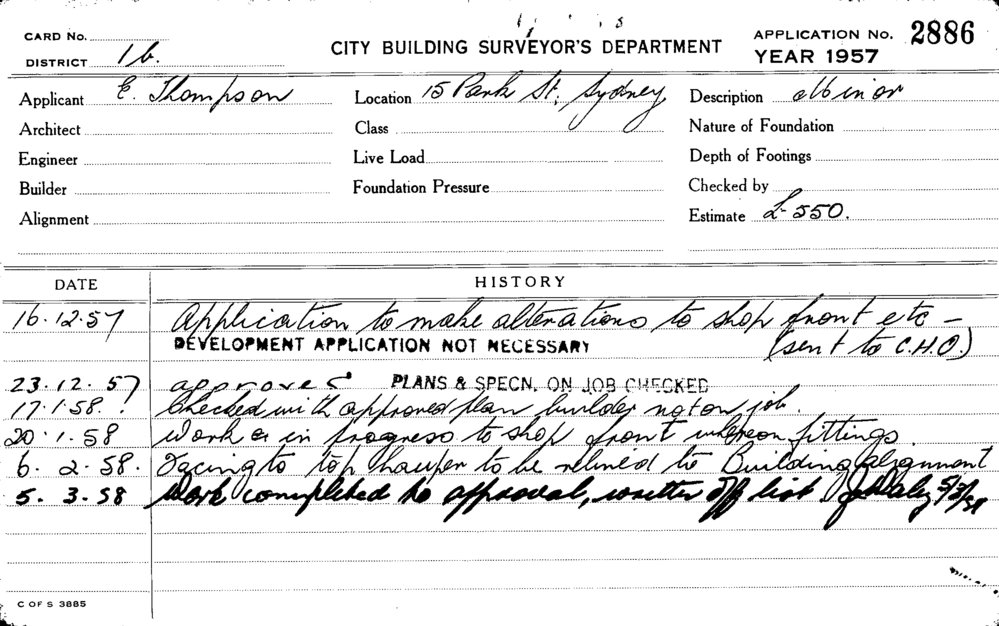 CARD No.
DISTRICT 1b.
CITY BUILDING SURVEYOR'S DEPARTMENT
APPLICATION No. 2886
YEAR 1957
Applicant E. Thompson Location 15 Park St. Sydney Description Minor
Architect Class Nature of Foundation
Engineer Live Load Depth of Footings
Builder Foundation Pressure Checked by
Alignment Estimate £550.
DATE HISTORY
16.12.57 Application to make alterations to shop front etc –
DEVELOPMENT APPLICATION NOT NECESSARY (sent to C.H.O.)
23.12.57 approved PLANS & SPECN. ON JOB CHECKED
17.1.58. Checked with approved plan builder not on job.
20.1.58 Work in progress to shop front fittings.
6.2.58. Facing to top to be to Building alignment
5.3.58 Work completed to approval, written off list J Daly 5/3/58
C OF S 3885